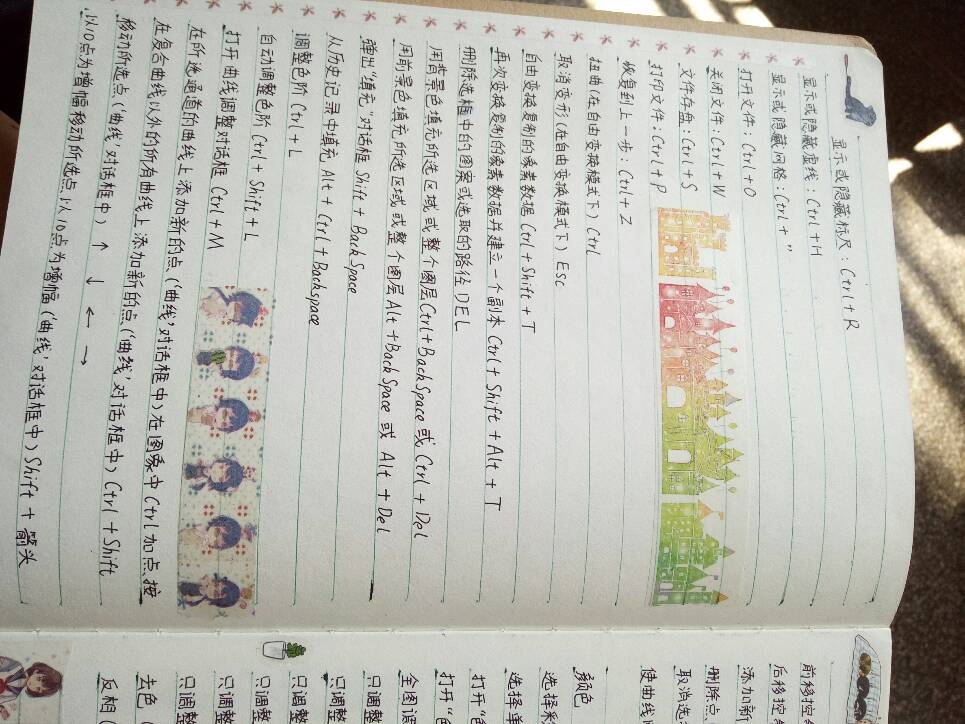 显示或隐藏标尺：Ctrl+R
显示或隐藏虚线：Ctrl+H
显示或隐藏网格：Ctrl+"
打开文件：Ctrl+O
关闭文件：Ctrl+W
文件存盘：Ctrl+S
打印文件：Ctrl+P
恢复到上一步：Ctrl+Z
扭曲(在自由变换模式下) Ctrl
取消变形(在自由变换模式下) Esc
自由变换复制的象素数据 Ctrl+Shift+T
再次变换复制的象素数据并建立一个副本 Ctrl+Shift+Alt+T
删除选框中的图案或选取的路径 DEL
用背景色填充所选区域或整个图层Ctrl+BackSpace或Ctrl+Del
用前景色填充所选区域或整个图层Alt+BackSpace或Alt+Del
弹出"填充"对话框 Shift+BackSpace
从历史记录中填充 Alt+Ctrl+Backspace
调整色阶 Ctrl+L
自动调整色阶 Ctrl+Shift+L
打开曲线调整对话框 Ctrl+M
在所选通道的曲线上添加新的点('曲线'对话框中)在图象中Ctrl加点按
在复合曲线以外的所有曲线上添加新的点('曲线'对话框中)Ctrl+Shift
移动所选点('曲线'对话框中) ↑ ↓ ← →
以10点为增幅移动所选点以10点为增幅('曲线'对话框中)Shift+箭头
前移控
后移控
添加新
删除点
取消选
使曲线
颜色
选择彩
选择单
打开"色
全图调
只调整
只调整
只调整
只调整
只调整
只调整
去色(
反相(